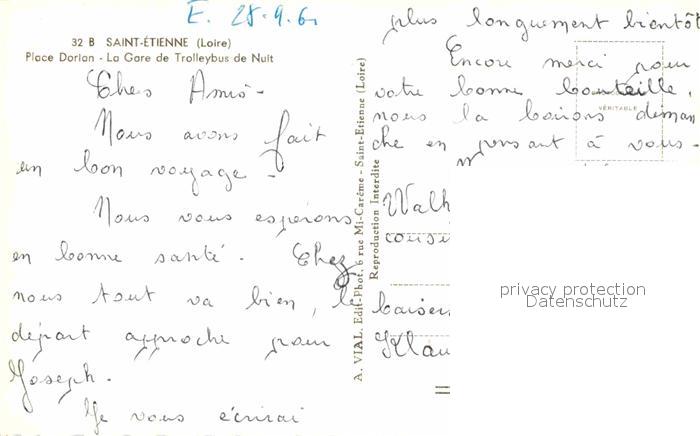 E. 28.9.61
32 B SAINT-ÉTIENNE (Loire)
Place Dorian - La Gare de Trolleybus de Nuit
Chers Amis -
Nous avons fait
un bon voyage -
Nous vous espérons
en bonne santé. Chez
nous tout va bien, le
départ approche pour
Joseph.
Je vous écrirai
plus longuement bientôt
Encore merci pour
votre bonne bouteille,
nous la boirons diman
che en pensant à vous -
VÉRITABLE
A. VIAL, Edit-Phot, 6 rue Mi-Carême - Saint-Etienne (Loire)
Reproduction Interdite
Walh
cousi
baisers
Klau
privacy protection
Datenschutz